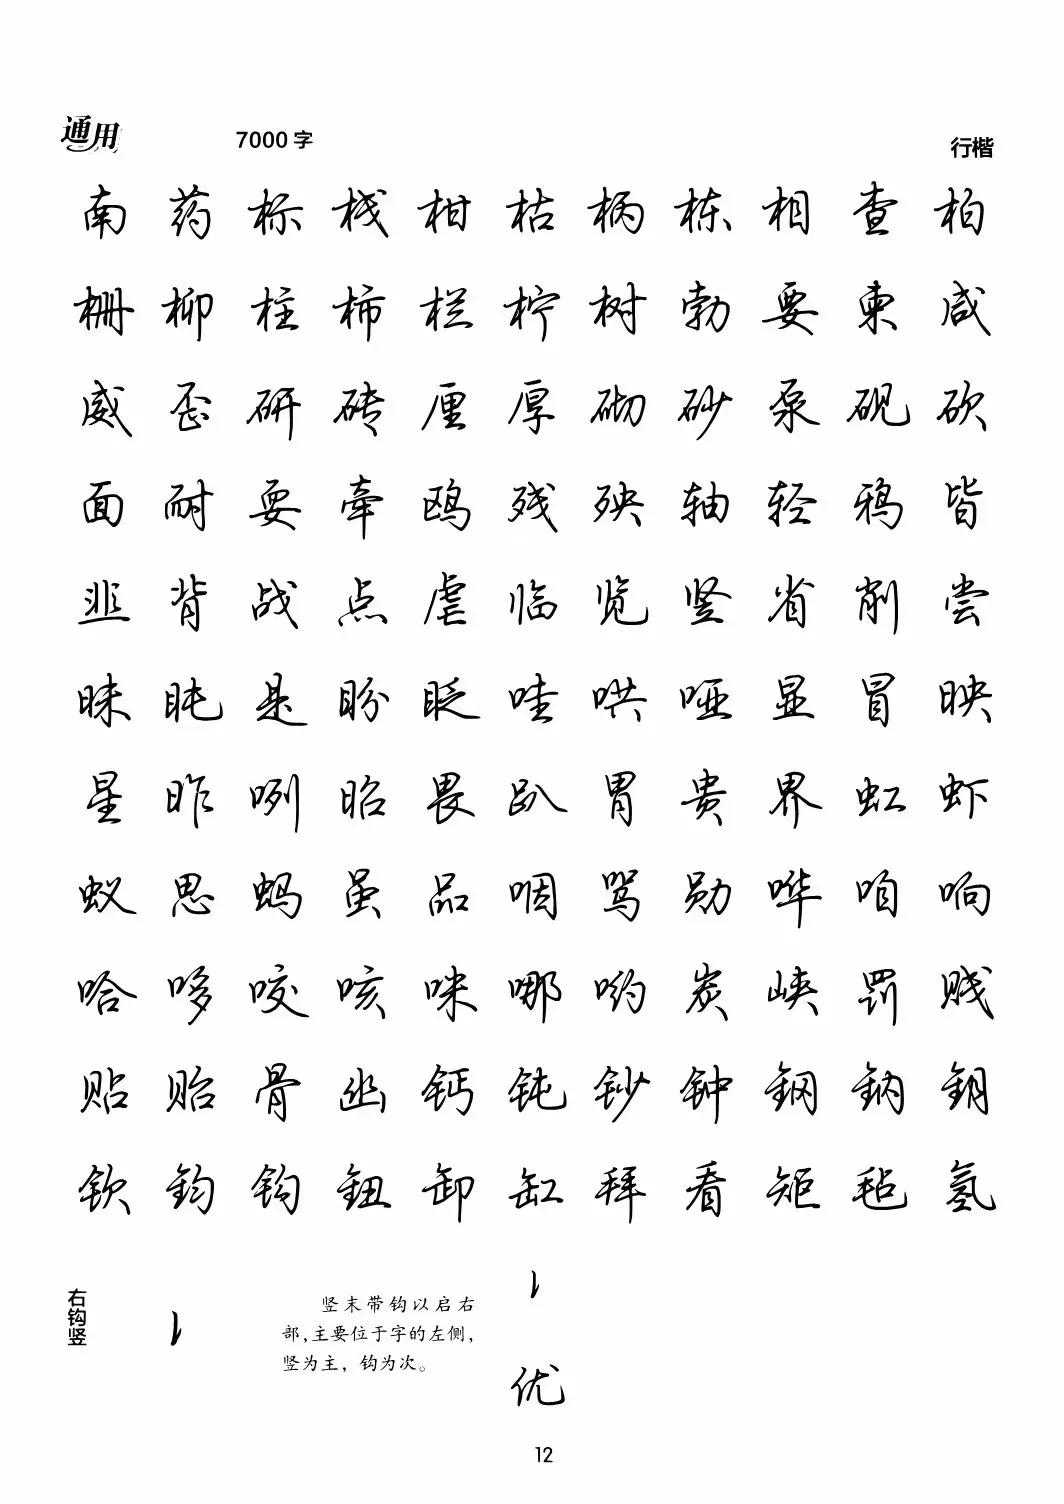 通用 7000 字 行楷
南 药 标 栈 柑 枯 柄 栋 相 查 柏
栅 柳 柱 柿 栏 柠 树 勃 要 柬 咸
威 歪 研 砖 厘 厚 砌 砂 泵 砚 砍
面 耐 耍 牵 鸥 残 殃 轴 轻 鸦 皆
韭 背 战 点 虐 临 览 竖 省 削 尝
昧 盹 是 盼 眨 哇 哄 哑 显 冒 映
星 昨 咧 昭 畏 趴 胃 贵 界 虹 虾
蚁 思 蚂 虽 品 咽 骂 勋 哗 咱 响
哈 哆 咬 咳 咪 哪 哟 炭 峡 罚 贱
贴 贻 骨 幽 钙 钝 钞 钟 钢 钠 钥
钦 钧 钩 钮 卸 缸 拜 看 矩 毡 氢
右钩竖
竖末带钩以启右
部,主要位于字的左侧,
竖为主，钩为次。
优
12